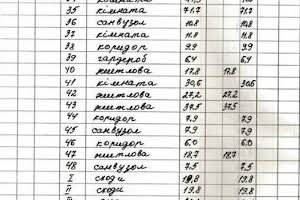 35 кімната 71.7 71.7
36 санвузол 10.8 10.8
37 кімната 11.8 11.8
38 коридор 9.9 9.9
39 гардероб 6.4 6.4
40 житлова 17.8 17.8
41 кімната 30.6 30.6
42 житлова 27,2 27,2
43 житлова 37.5 37.5
44 коридор 7.9 7.9
45 санвузол 7.9 7.9
46 коридор 6.0 6.0
47 житлова 18.7 18.7
48 санвузол 7.5 7.5
I сходи 19.8 19.8
II сходи 13.8 13.8